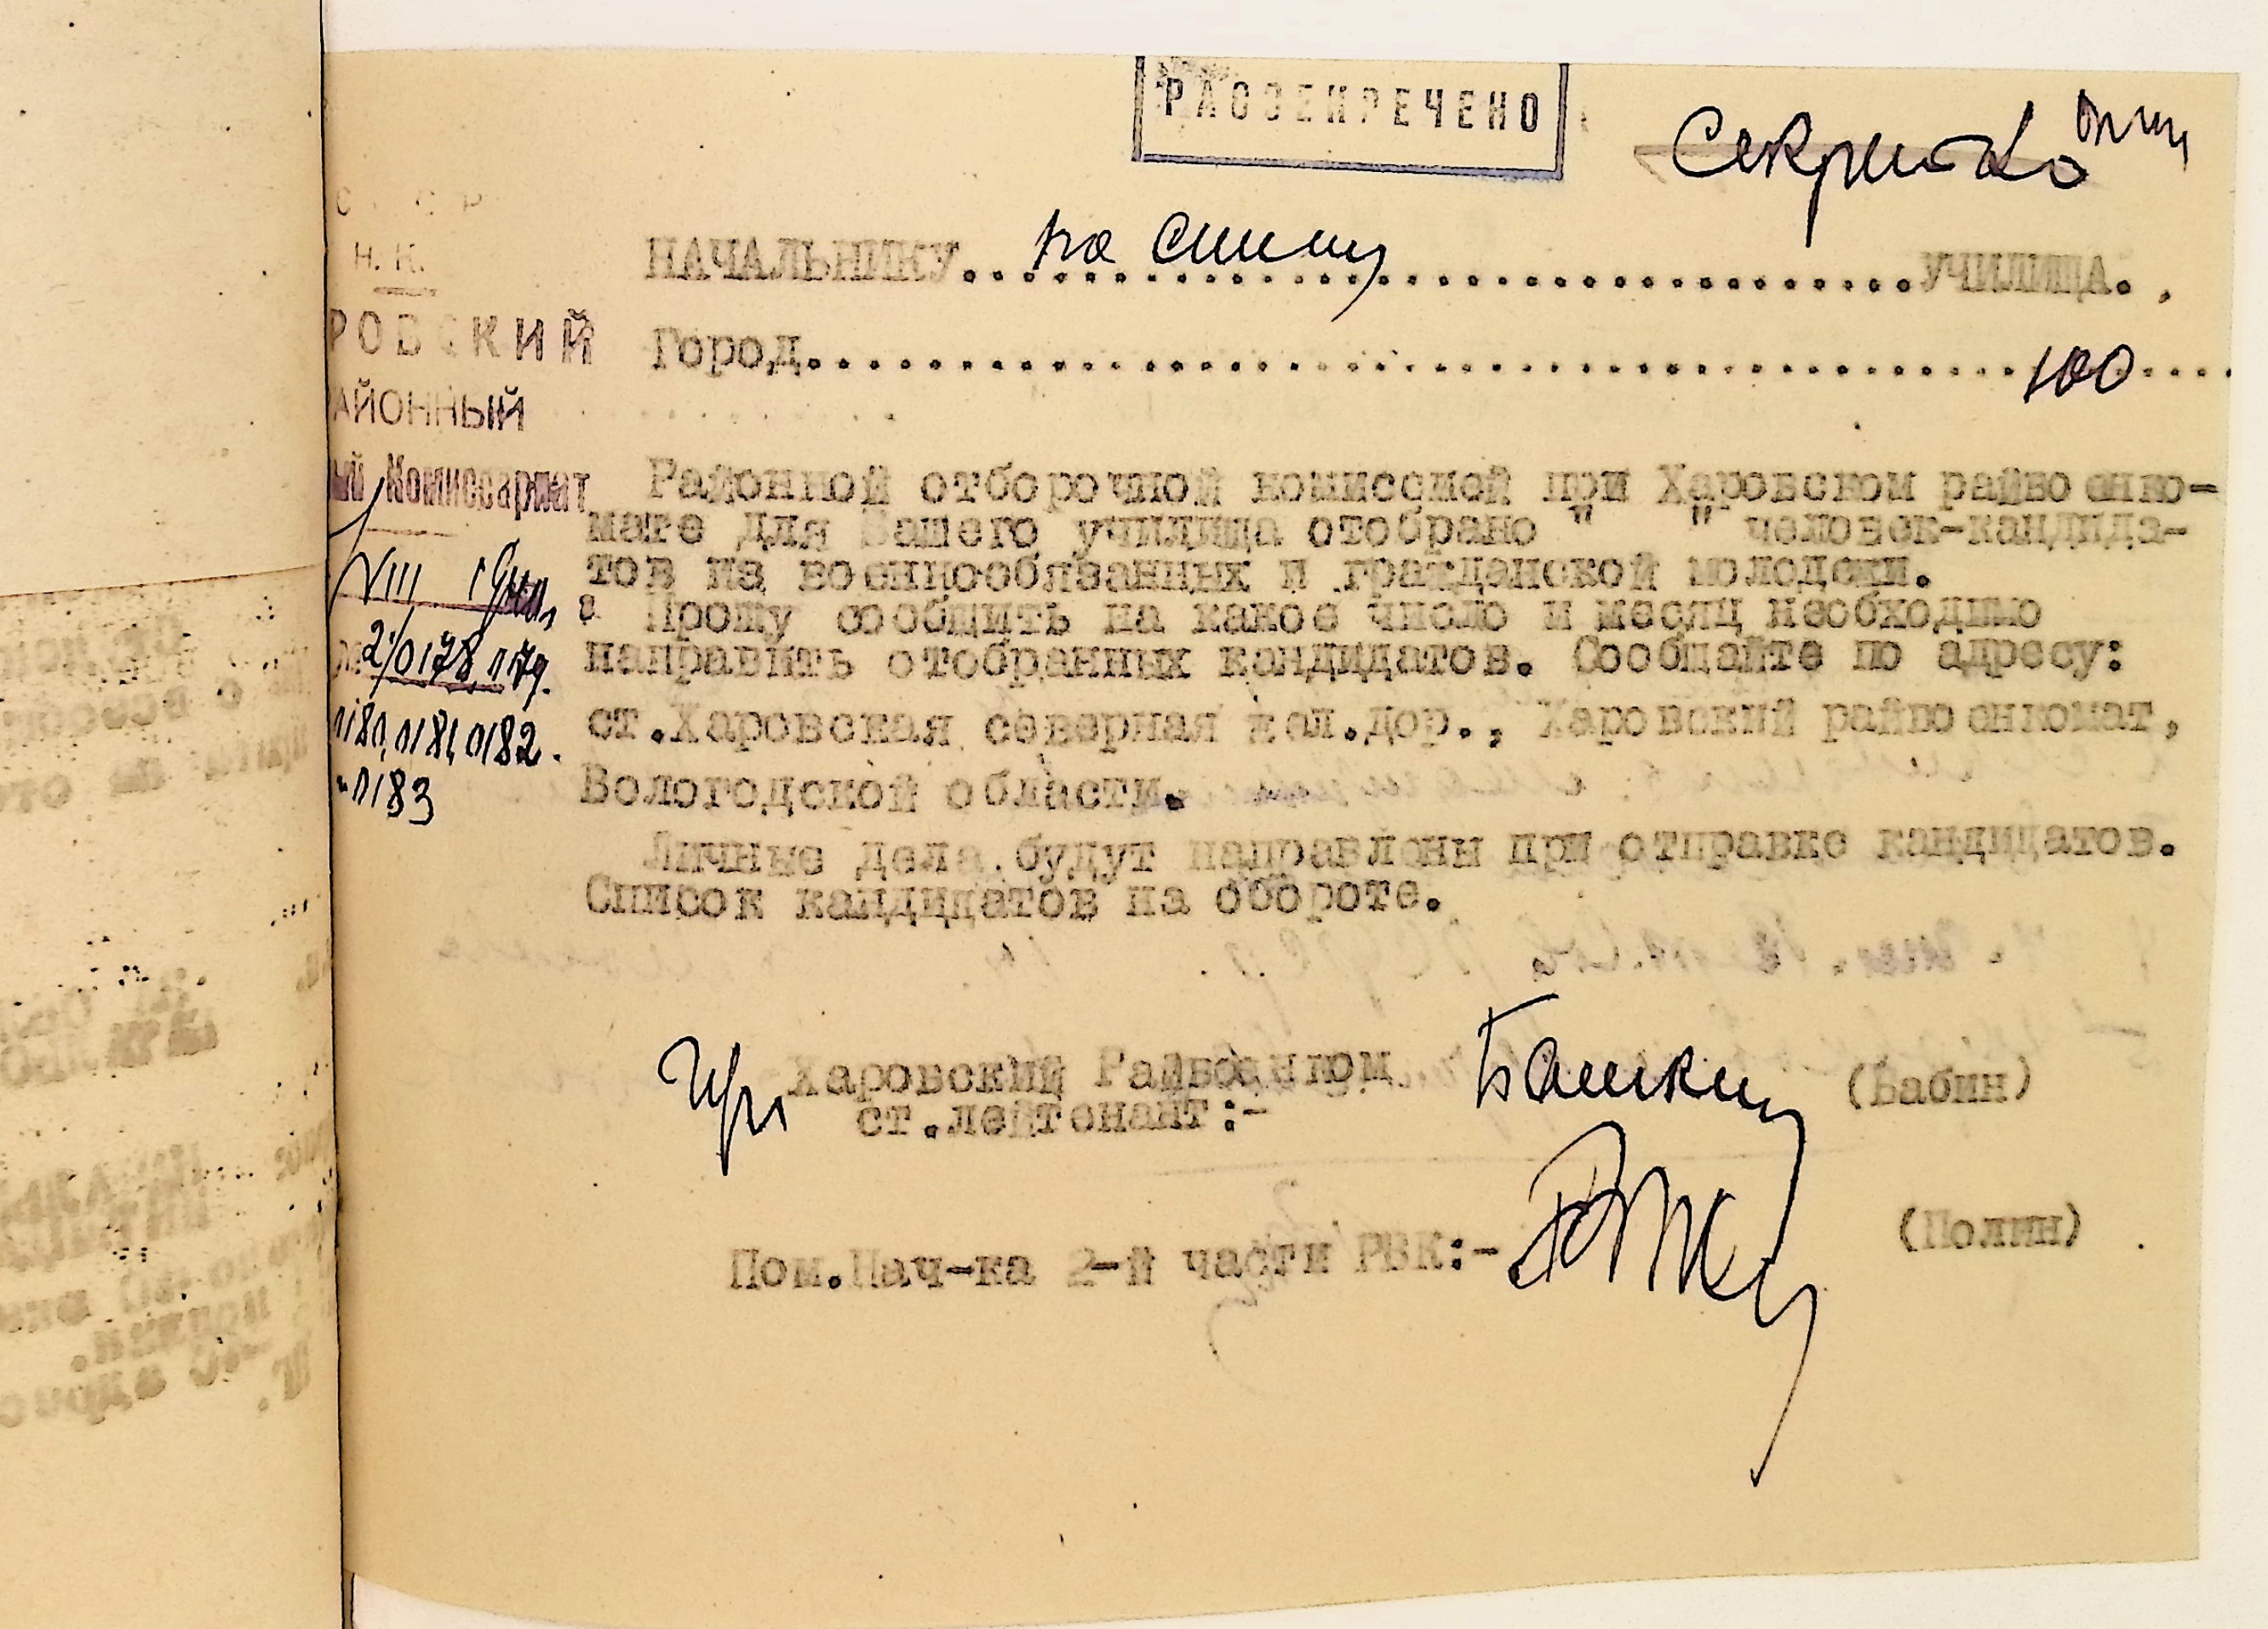 РАССЕКРЕЧЕНО
Секретно
С С С Р
Н. К.
РОВСКИЙ
АЙОННЫЙ
ый Комиссариат
VIII
2/0178, 0179.
0180, 0181, 0182.
0183
НАЧАЛЬНИКУ.. по списку УЧИЛИЩА.
Город 100
Районной отборочной комиссией при Харовском райвоенко-
мате для Вашего училища отобрано " " человек-кандида-
тов из военнообязанных и гражданской молодежи.
Прошу сообщить на какое число и месяц необходимо
направить отобранных кандидатов. Сообщайте по адресу:
ст.Харовская северная жел.дор., Харовский райвоенкомат,
Вологодской области.
Личные дела будут направлены при отправке кандидатов.
Список кандидатов на обороте.
Харовский Райвоенком Башкин (Бабин)
ст.лейтенант:-
Пом.Нач-ка 2-й части РВК:- (Полин)